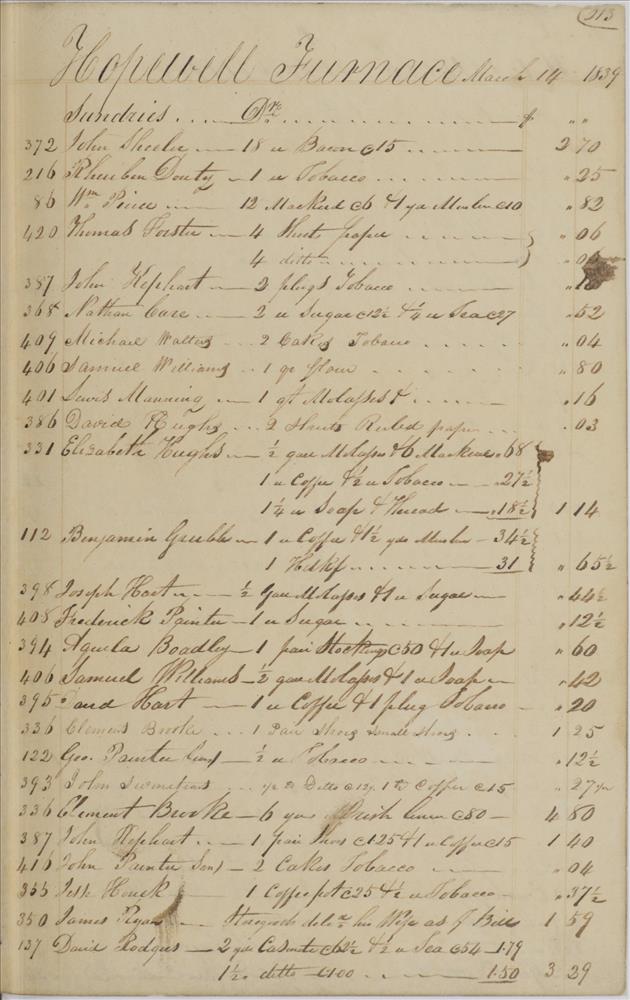 213
Hopewell Furnace March 14 1839
Sundries .... Dr. ....... $ " "
372 John Sheeler — 18 lb Bacon c15 ..... 2 70
216 Rheuben Douty — 1 lb Tobacco .... " 25
86 Wm Peirce — 12 Mackerel c6 & 1 yd Muslin c10 " 82
420 Thomas Forster — 4 Sheets paper ..... " 06
4 ditto
387 John Kephart — 2 plugs Tobacco
368 Nathan Care — 2 lb Sugar c12½ & ¼ lb Tea c27 " 52
409 Michael Walters .. 2 Cakes Tobacco .... " 04
406 Samuel Williams .. 1 qr flour .... " 80
401 Lewis Manning — 1 qt Molasses ..... " 16
386 David Hughs ... 2 Sheets Ruled paper ... " 03
331 Elizabeth Hughs — ½ gall Molasses & 6 Mackerel " 68
1 lb Coffee & ½ lb Tobacco — " 27½
1¼ lb Soap & Thread — " 18½ 1 14
112 Benjamin Grubb — 1 lb Coffee & 1½ yds Muslin — 34½
1 Hdkf — 31 " 65½
398 Joseph Hart — ½ gall Molasses & 1 lb Sugar — " 44½
408 Frederick Painter — 1 lb Sugar ..... " 12½
394 Aquila Boadley — 1 pair Stockings c50 & 1 lb Soap " 60
406 Samuel Williams — ½ gall Molasses & 1 lb Soap — " 42
395 David Hart — 1 lb Coffee & 1 plug Tobacco — " 20
336 Clement Brooke ... 1 Pair Shoes Small Shoes ... 1 25
122 Geo. Painter — ½ lb Tobacco .... " 12½
393 John Ditto 1 lb Coffee c15 " 27
336 Clement Brooke — 6 yds Irish linen c80 — 4 80
387 John Kephart .. — 1 pair Shoes c1.25 & 1 lb Coffee c15 1 40
416 John Painter Senr — 2 Cakes Tobacco — " 04
355 Jesse Houck — 1 Coffee pot c25 & ½ lb Tobacco — " 37½
350 James Ryan — his Wife as p Bill 1 59
137 David Rodgers — 2 yds c62½ & ½ lb Tea c54 — 1.79
1½ " ditto c100 .... 1.50 3 29